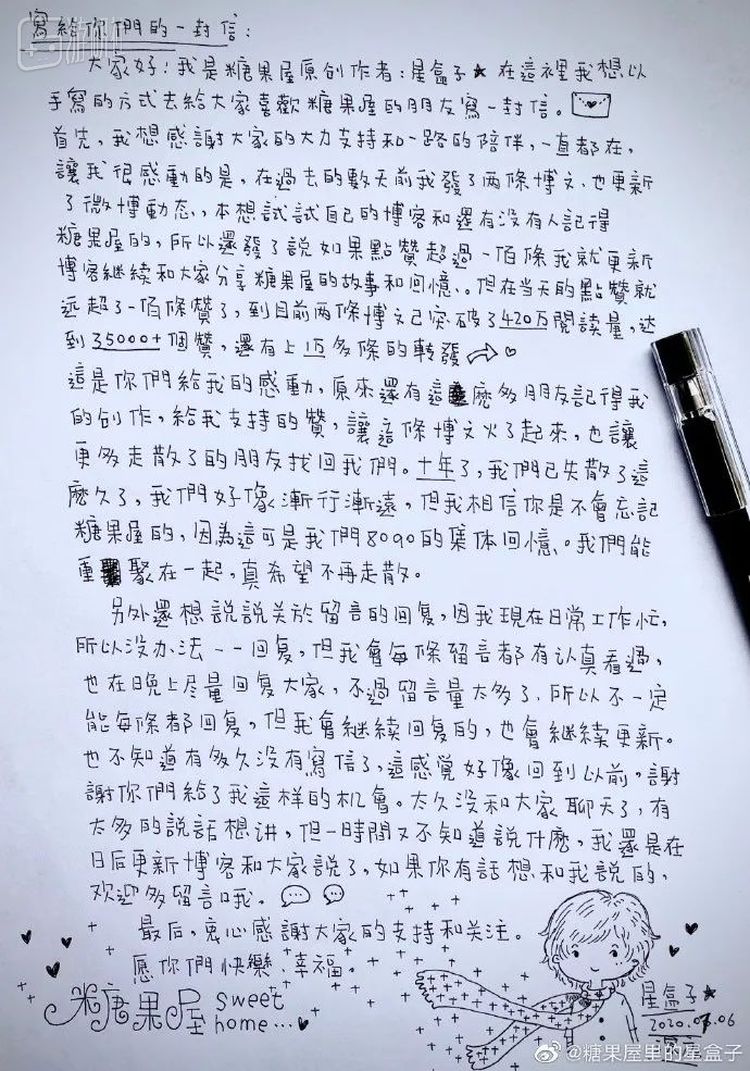 寫給你們的一封信：
大家好！我是糖果屋原创作者：星盒子★在這裡我想以
手寫的方式去給大家喜歡糖果屋的朋友寫一封信。
首先，我想感謝大家的大力支持和一路的陪伴，一直都在，
讓我很感動的是，在過去的數天前我發了兩條博文、也更新
了微博動态，本想試試自己的博客和還有没有人記得
糖果屋的，所以還發了説如果點贊超過一佰條我就更新
博客継续和大家分享糖果屋的故事和回憶、。但在当天的點贊就
远超了一佰條贊了，到目前兩條博文已突破了420万閱読量，达
到35000+個贊，還有上1万多條的轉發
這是你們給我的感動，原來還有這麽多朋友記得我
的创作，給我支持的贊，讓這條博文火了起來，也讓
更多走散了的朋友找回我們。十年了，我們已失散了這
麽久了，我們好像漸行漸遠，但我相信你是不會忘記
糖果屋的，因為這可是我們8090的集体回憶、。我們能
重聚在一起，真希望不再走散。
另外還想説説关於留言的回复，因我現在日常工作忙，
所以没办法一一回复，但我會每條留言都有认真看過，
也在晚上尽量回复大家，不過留言量太多了，所以不一定
能每條都回复，但我會継续回复的，也會継续更新。
也不知道有多久没有寫信了，這感覚好像回到以前，謝
謝你們給了我這样的机會。太久没和大家聊天了，有
太多的説話想讲，但一時間又不知道説什麽，我還是在
日后更新博客和大家説了，如果你有話想和我説的，
欢迎多留言哦。
最后，衷心感謝大家的支持和关注。
愿你們快樂、幸福。
糖果屋 sweet
home...
星盒子★
2020.07.06
@糖果屋里的星盒子